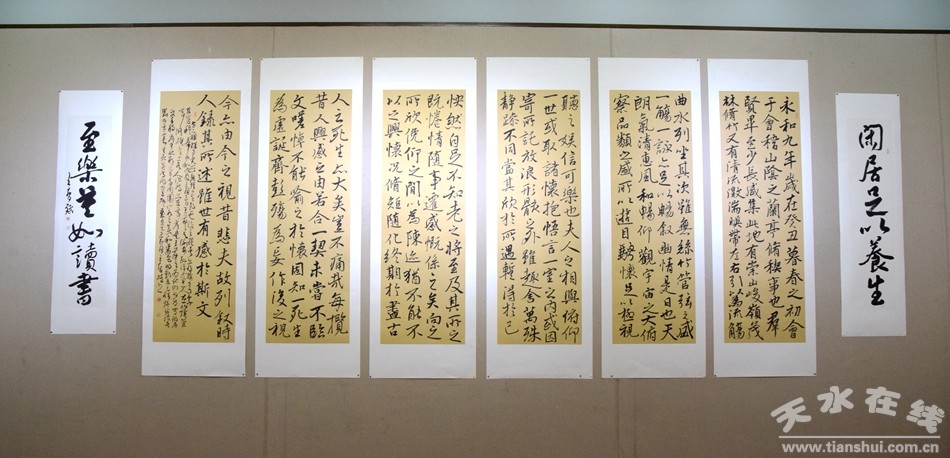 閑居足以養生
永和九年歲在癸丑暮春之初會
于會稽山陰之蘭亭脩稧事也羣
賢畢至少長咸集此地有崇山峻嶺茂
林脩竹又有清流激湍暎帶左右引以為流觴
曲水列坐其次雖無絲竹管弦之盛
一觴一詠亦足以暢敘幽情是日也天
朗氣清惠風和暢仰觀宇宙之大俯
察品類之盛所以遊目騁懷足以極視
聽之娛信可樂也夫人之相與俯仰
一世或取諸懷抱悟言一室之內或因
寄所託放浪形骸之外雖趣舍萬殊
靜躁不同當其欣於所遇輕得於己
快然自足不知老之將至及其所之
既惓情隨事遷感慨係之矣向之
所欣俛仰之間以為陳迹猶不能不
以之興懷況脩短隨化終期於盡古
人云死生亦大矣豈不痛哉每攬
昔人興感之由若合一契未嘗不臨
文嗟悼不能喻之於懷固知一死生
為虛誕齊彭殤為妄作後之視
今亦由今之視昔悲夫故列敘時
人錄其所述雖世有感於斯文
至樂莫如讀書
天水在线
www.tianshui.com.cn